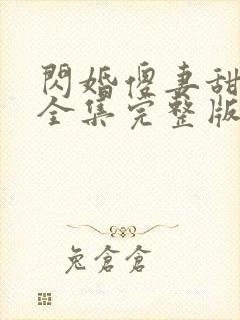 閃婚傻妻甜
全集完整版
兔倉倉